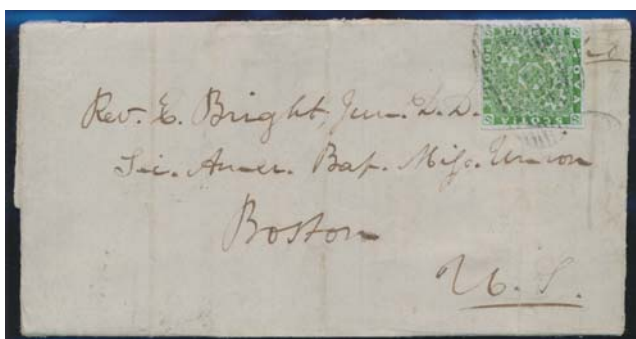 Rev. E. Bright, Jun. D.D.
Sec. Amer. Bap. Miss. Union
Boston
U.S.